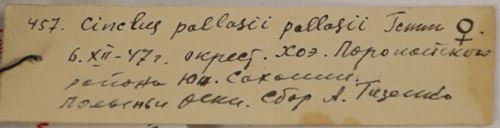 457. Cinclus pallasii pallasii Temm ♀.
6. XII-47г. окрест. Хоэ. Поронайского
района Юж. Сахалин.
Полыньи реки. Сбор А. Тизенко